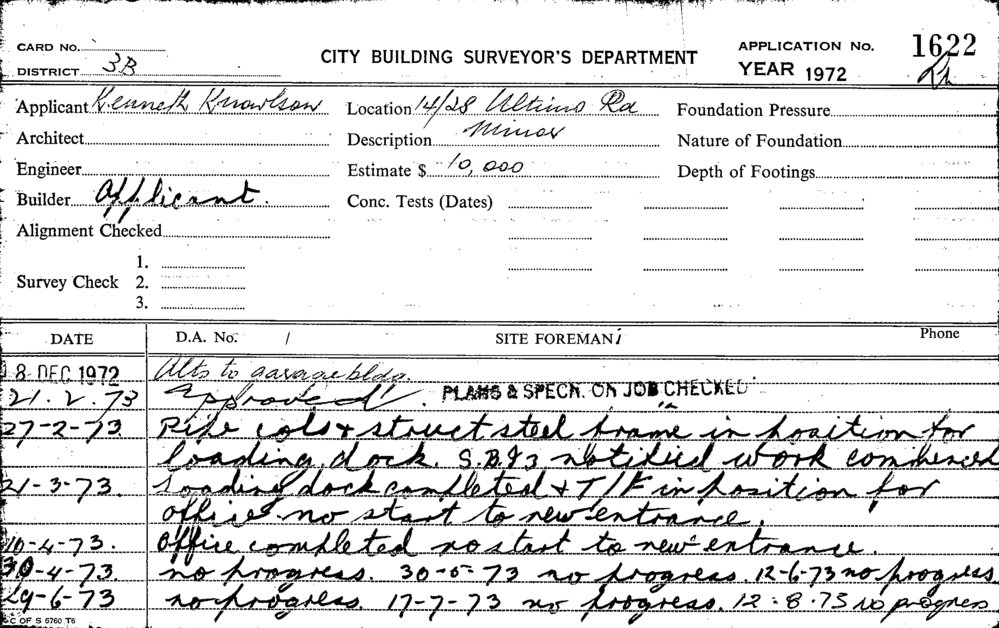 CARD No.
DISTRICT 3B
CITY BUILDING SURVEYOR'S DEPARTMENT
APPLICATION No. 1622
YEAR 1972
Applicant Kenneth Knowlson
Location 14/28 Ultimo Rd
Foundation Pressure
Architect
Description Minor
Nature of Foundation
Engineer
Estimate $ 10,000
Depth of Footings
Builder Applicant.
Conc. Tests (Dates)
Alignment Checked
Survey Check 1.
2.
3.
DATE D.A. No. / SITE FOREMAN Phone
8 DEC 1972 Alts to garage bldg.
21.2.73 Approved. PLANS & SPECN. ON JOB CHECKED
27-2-73. Pipe cols & struct steel frame in position for
loading dock. S.B.I3 notified work commenced
21-3-73. Loading dock completed & T/F in position for
office no start to new entrance.
10-4-73. Office completed no start to new entrance.
30-4-73. no progress. 30-5-73 no progress. 12-6-73 no progress.
29-6-73 no progress. 17-7-73 no progress. 12.8.73 no progress
C OF S 5760 T6